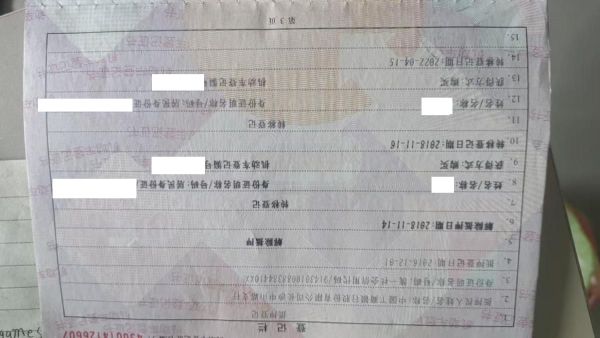 430014126607
登记栏
1. 抵押登记
2. 抵押权人姓名/名称: 中国工商银行股份有限公司长沙中山路支行
3. 身份证明名称/号码: 统一社会信用代码/
4. 抵押登记日期: 2016-12-01
5. 解除抵押
6. 解除抵押日期: 2018-11-14
7. 转移登记
8. 姓名/名称: 身份证明名称/号码: 居民身份证/
9. 获得方式: 购买 机动车登记编号
10. 转移登记日期: 2018-11-16
11. 转移登记
12. 姓名/名称: 身份证明名称/号码: 居民身份证
13. 获得方式: 购买 机动车登记编
14. 转移登记日期: 2022-04-15
15.
第 3 页